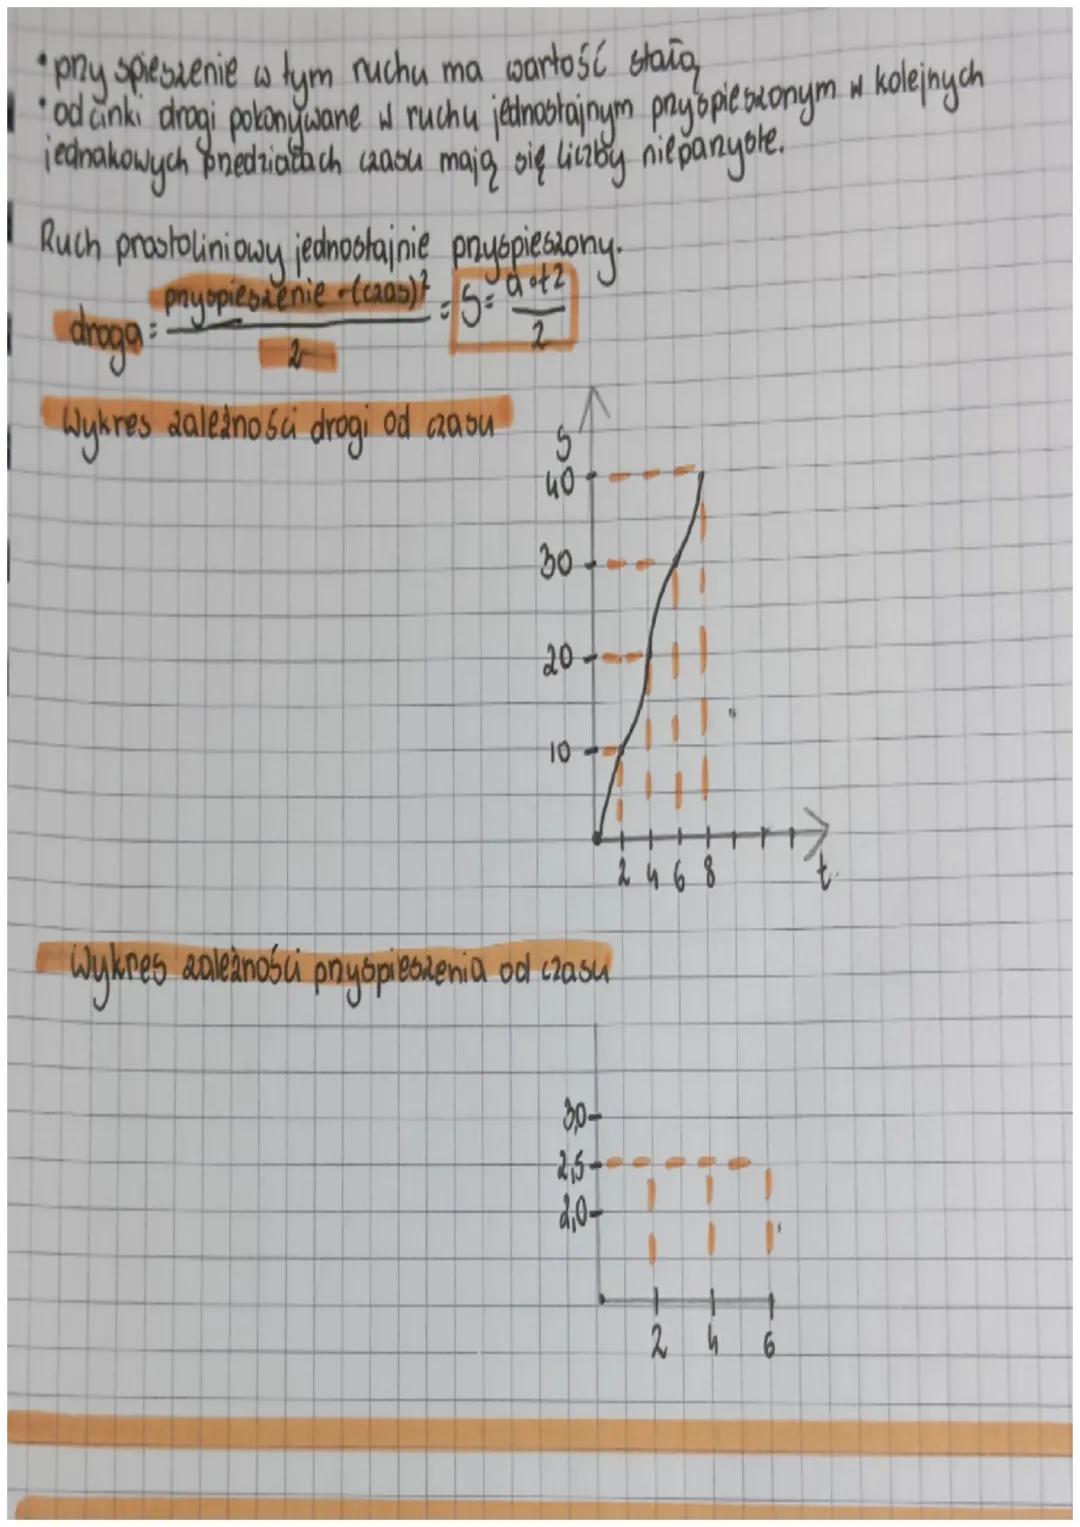 • przyspieszenie w tym ruchu ma wartość stałą
• odcinki drogi pokonywane w ruchu jednostajnym przyspieszonym w kolejnych
jednakowych przedziałach czasu mają się liczby nieparzyste.
Ruch prostoliniowy jednostajnie przyspieszony.
droga = przyspieszenie · (czas)² / 2 = S = a · t2 / 2
Wykres zależności drogi od czasu
S
40
30
20
10
2 4 6 8 t
Wykres zależności przyspieszenia od czasu
3,0
2,5
2,0
2 4 6